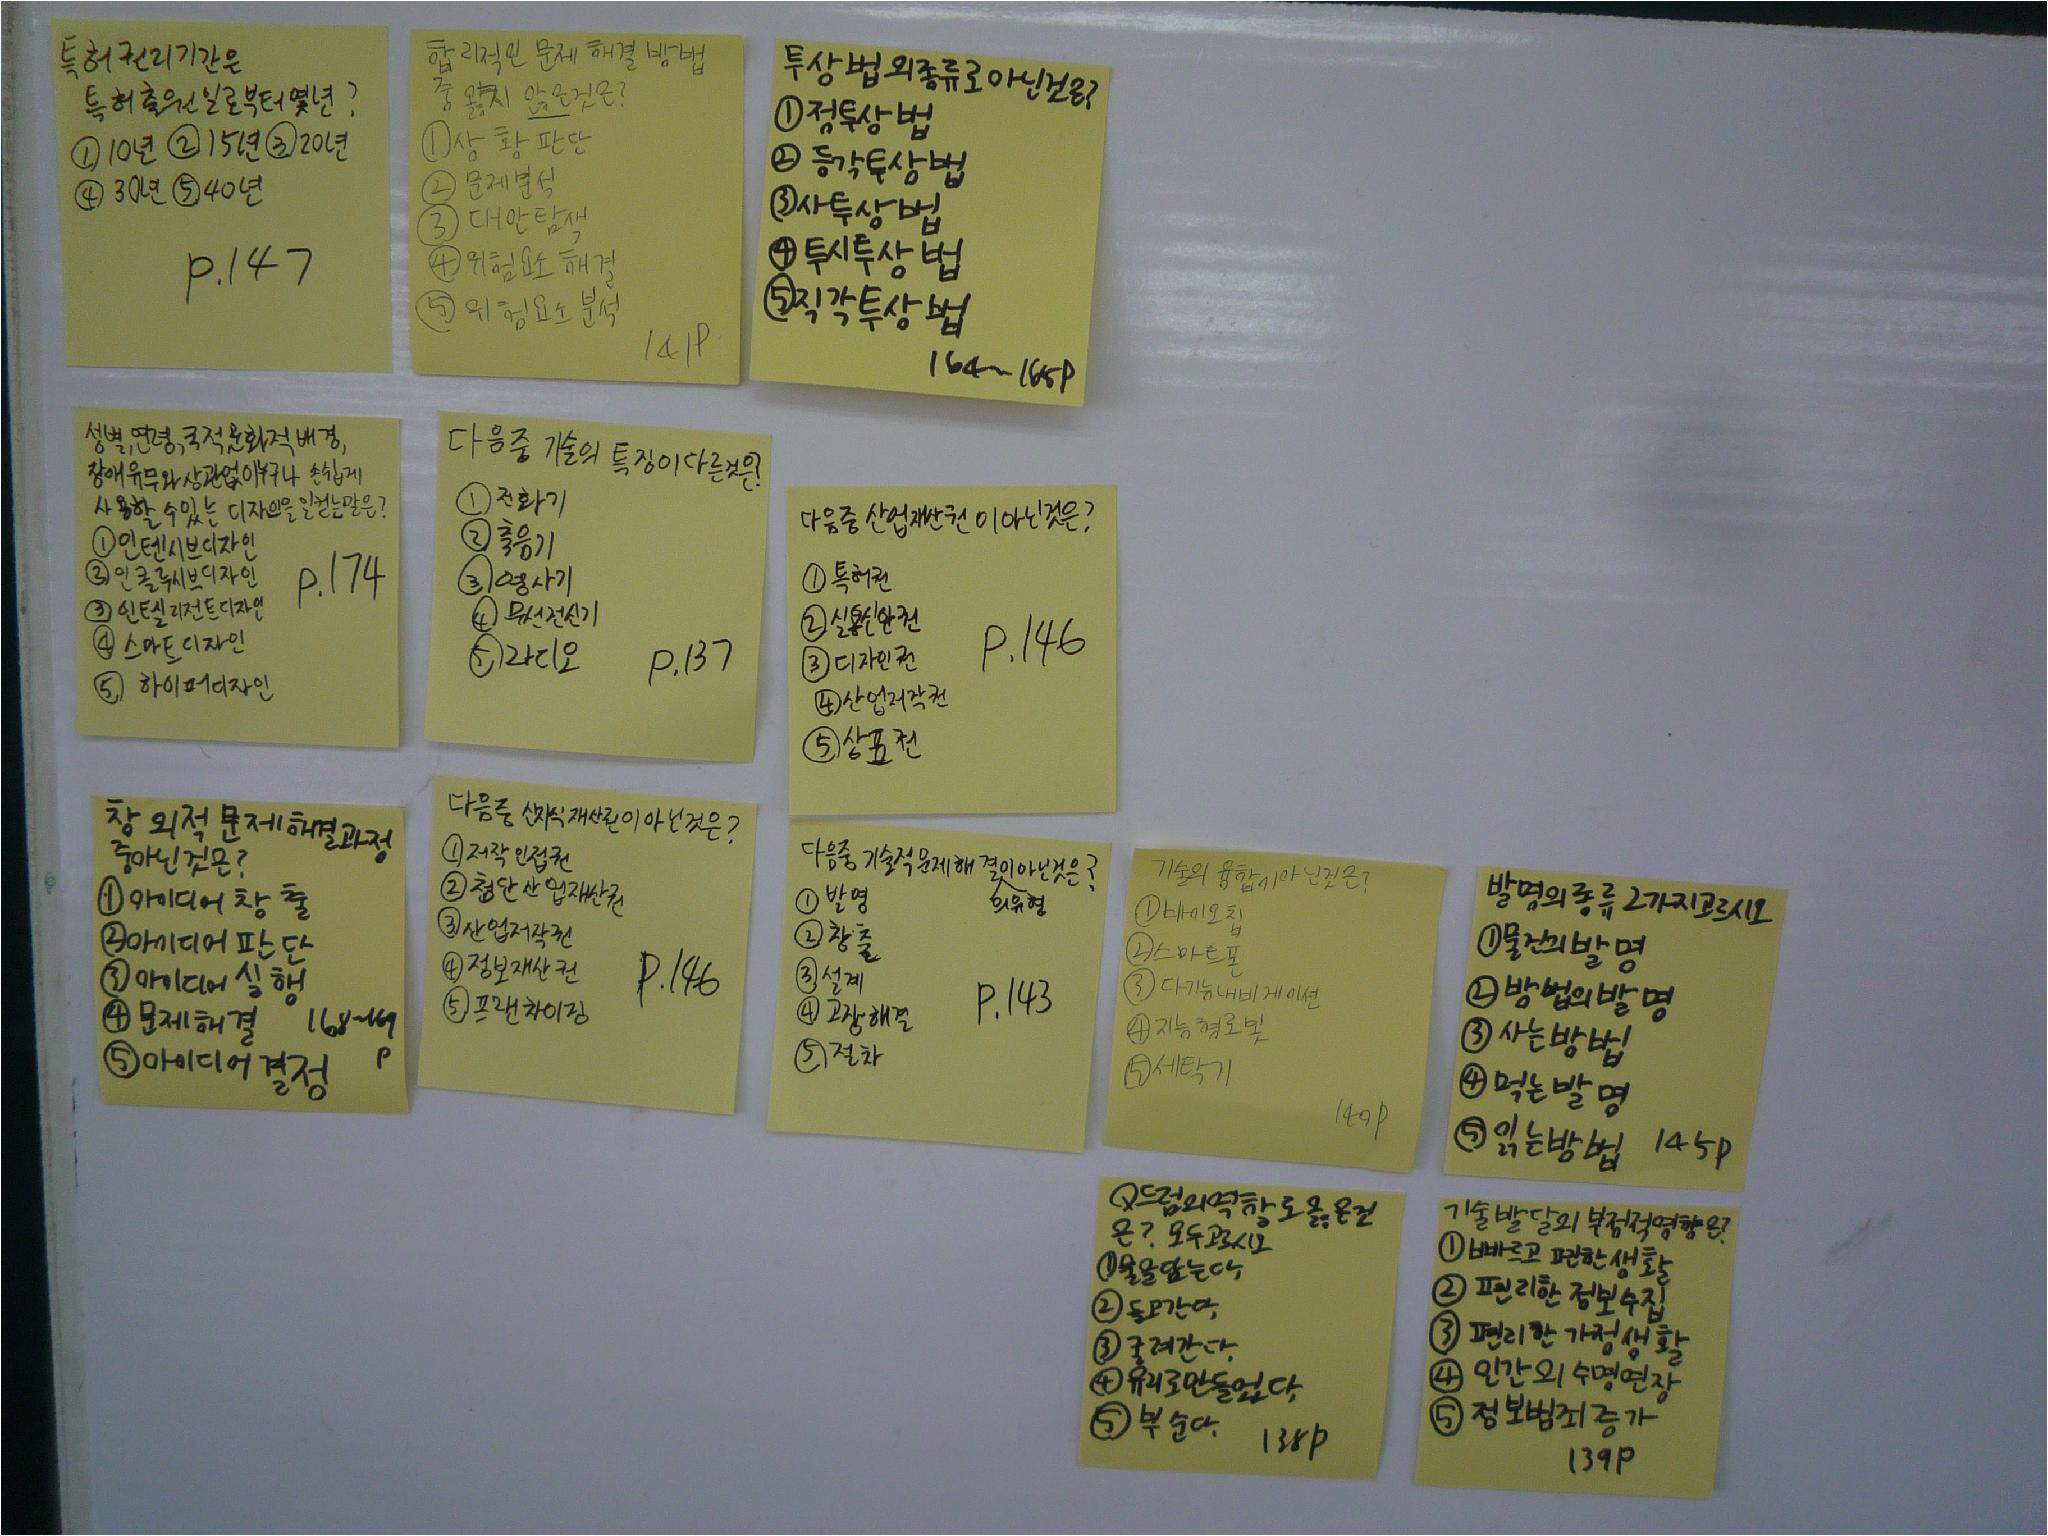 특허권리기간은
특허출원일로부터 몇년?
①10년 ②15년 ③20년
④30년 ⑤40년
p.147
합리적인 문제 해결 방법
중 옳지 않은것은?
①상황판단
②문제분석
③대안탐색
④위험요소 해결
⑤위험요소 분석
141P
투상법의종류로아닌것은?
①정투상법
②등각투상법
③사투상법
④투시투상법
⑤직각투상법
164~165P
성별,연령,국적,문화적배경,
장애유무와상관없이누구나 손쉽게
사용할 수있는 디자인을일컫는말은?
①인텐시브디자인
②인클루시브디자인
③인텔리전트디자인
④스마트디자인
⑤하이퍼디자인
p.174
다음중 기술의 특징이다른것은?
①전화기
②축음기
③영사기
④무선전신기
⑤라디오
p.137
다음중 산업재산권이아닌것은?
①특허권
②실용신안권
③디자인권
④산업저작권
⑤상표권
p.146
창의적문제해결과정
중아닌것은?
①아이디어 창출
②아이디어 판단
③아이디어 실행
④문제해결
⑤아이디어결정
168~169
P
다음중 신지식재산권이아닌것은?
①저작인접권
②첨단산업재산권
③산업저작권
④정보재산권
⑤프랜차이징
P.146
다음중 기술적문제해결이아닌것은?
의유형
①발명
②창출
③설계
④고장해결
⑤절차
P.143
기술의 융합이아닌것은?
①바이오칩
②스마트폰
③다기능내비게이션
④지능형로봇
⑤세탁기
149P
발명의종류 2가지고르시오
①물건의발명
②방법의발명
③사는방법
④먹는발명
⑤읽는방법
145P
Q드럼의역할로옳은것
은? 모두고르시오
①물을담는다.
②들고간다.
③굴려간다.
④유리로만들었다.
⑤부순다.
138P
기술발달의 부정적영향은?
①빠르고 편한생활
②편리한 정보수집
③편리한 가정생활
④인간의 수명연장
⑤정보범죄증가
139P